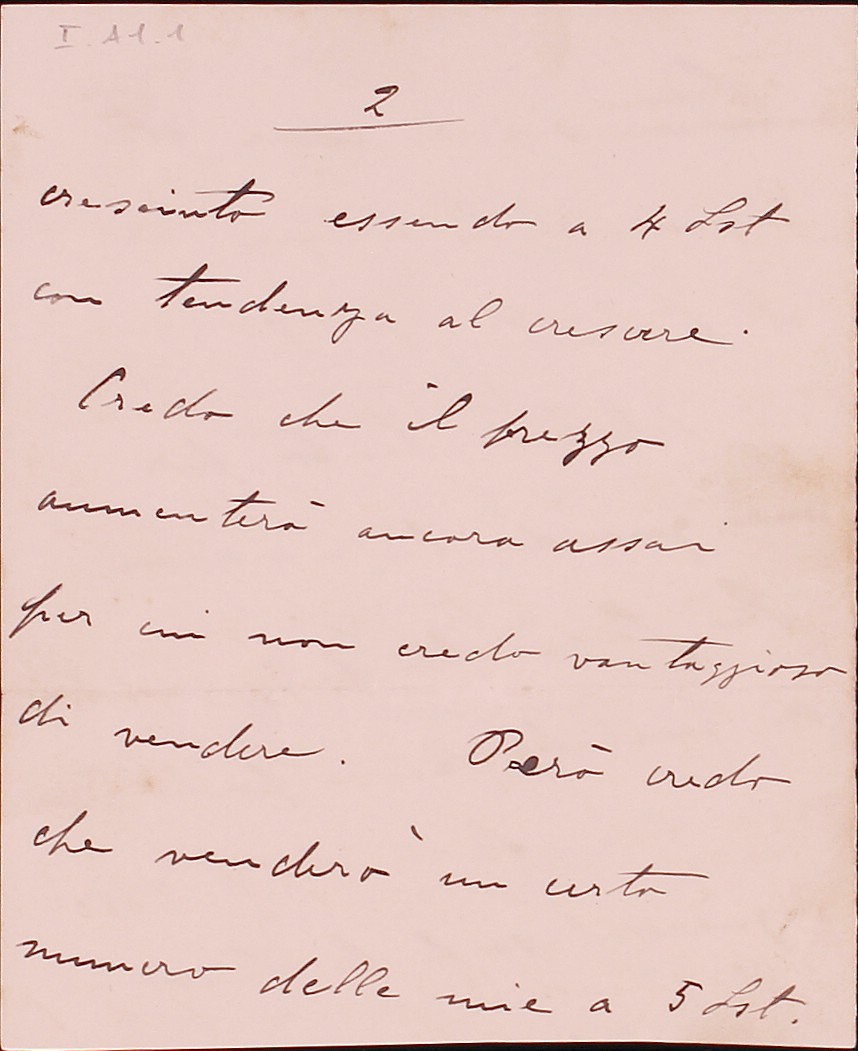 I. A1.1
2
cresciuto essendo a 4 Lst
con tendenza al crescere.
Credo che il prezzo
aumenterà ancora assai
per cui non credo vantaggioso
di vendere. Però credo
che venderò un certo
numero delle mie a 5 Lst.